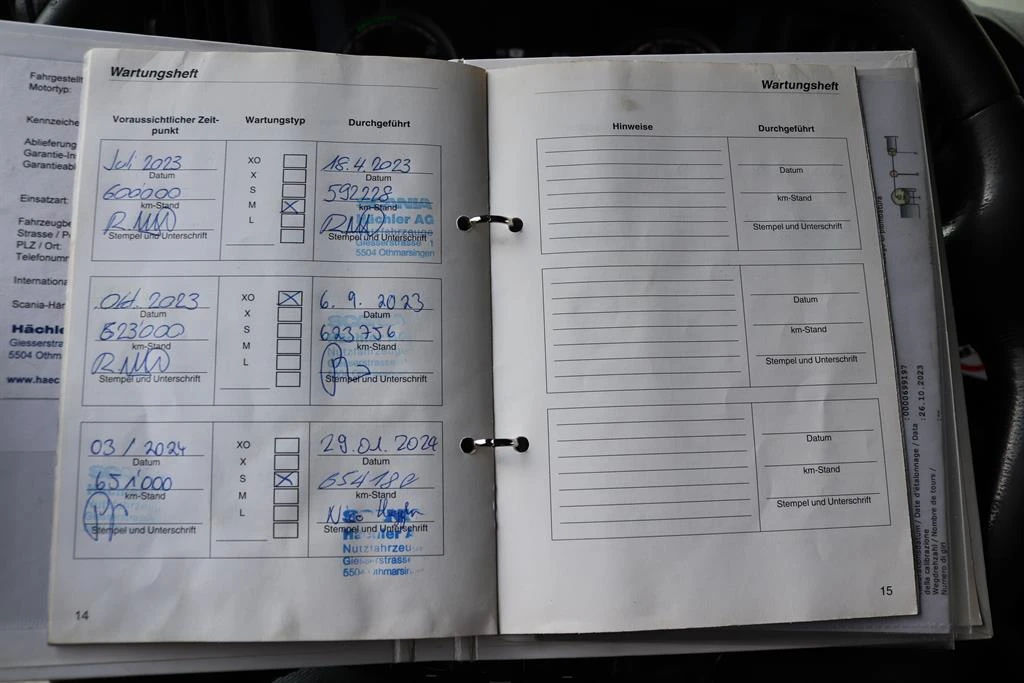 Fahrgestell
Motortyp:
Kennzeiche
Ablieferung
Garantie-In
Garantieabl
Einsatzart:
Fahrzeugbe
Strasse / P
PLZ / Ort:
Telefonnum
Internationa
Scania-Hän
Hächler
Giesserstrasse
5504 Othm
www.haec
Wartungsheft
Voraussichtlicher Zeit-
punkt
Wartungstyp
Durchgeführt
Juli 2023
Datum
600'000
km-Stand
Stempel und Unterschrift
XO
X
S
M
L
18.4.2023
Datum
592228
km-Stand
Hächler AG
Nutzfahrzeuge
Stempel und Unterschrift
Giesserstrasse 1
5504 Othmarsingen
Okt. 2023
Datum
623'000
km-Stand
Stempel und Unterschrift
XO
X
S
M
L
6. 9. 2023
Datum
623756
km-Stand
Nutzfahrzeuge
Giesserstrasse
Stempel und Unterschrift
03 / 2024
Datum
651'000
km-Stand
Stempel und Unterschrift
XO
X
S
M
L
29.01.2024
Datum
654180
km-Stand
Stempel und Unterschrift
Hächler A
Nutzfahrzeuge
Giesserstrasse
5504 Othmarsin
14
Wartungsheft
Hinweise
Durchgeführt
Datum
km-Stand
Stempel und Unterschrift
Datum
km-Stand
Stempel und Unterschrift
Datum
km-Stand
Stempel und Unterschrift
15
:0000699197
:26.10.2023
Date d'étalonnage / Data
della calibrazione
Wegdrehzahl / Nombre de tours /
Numero di giri